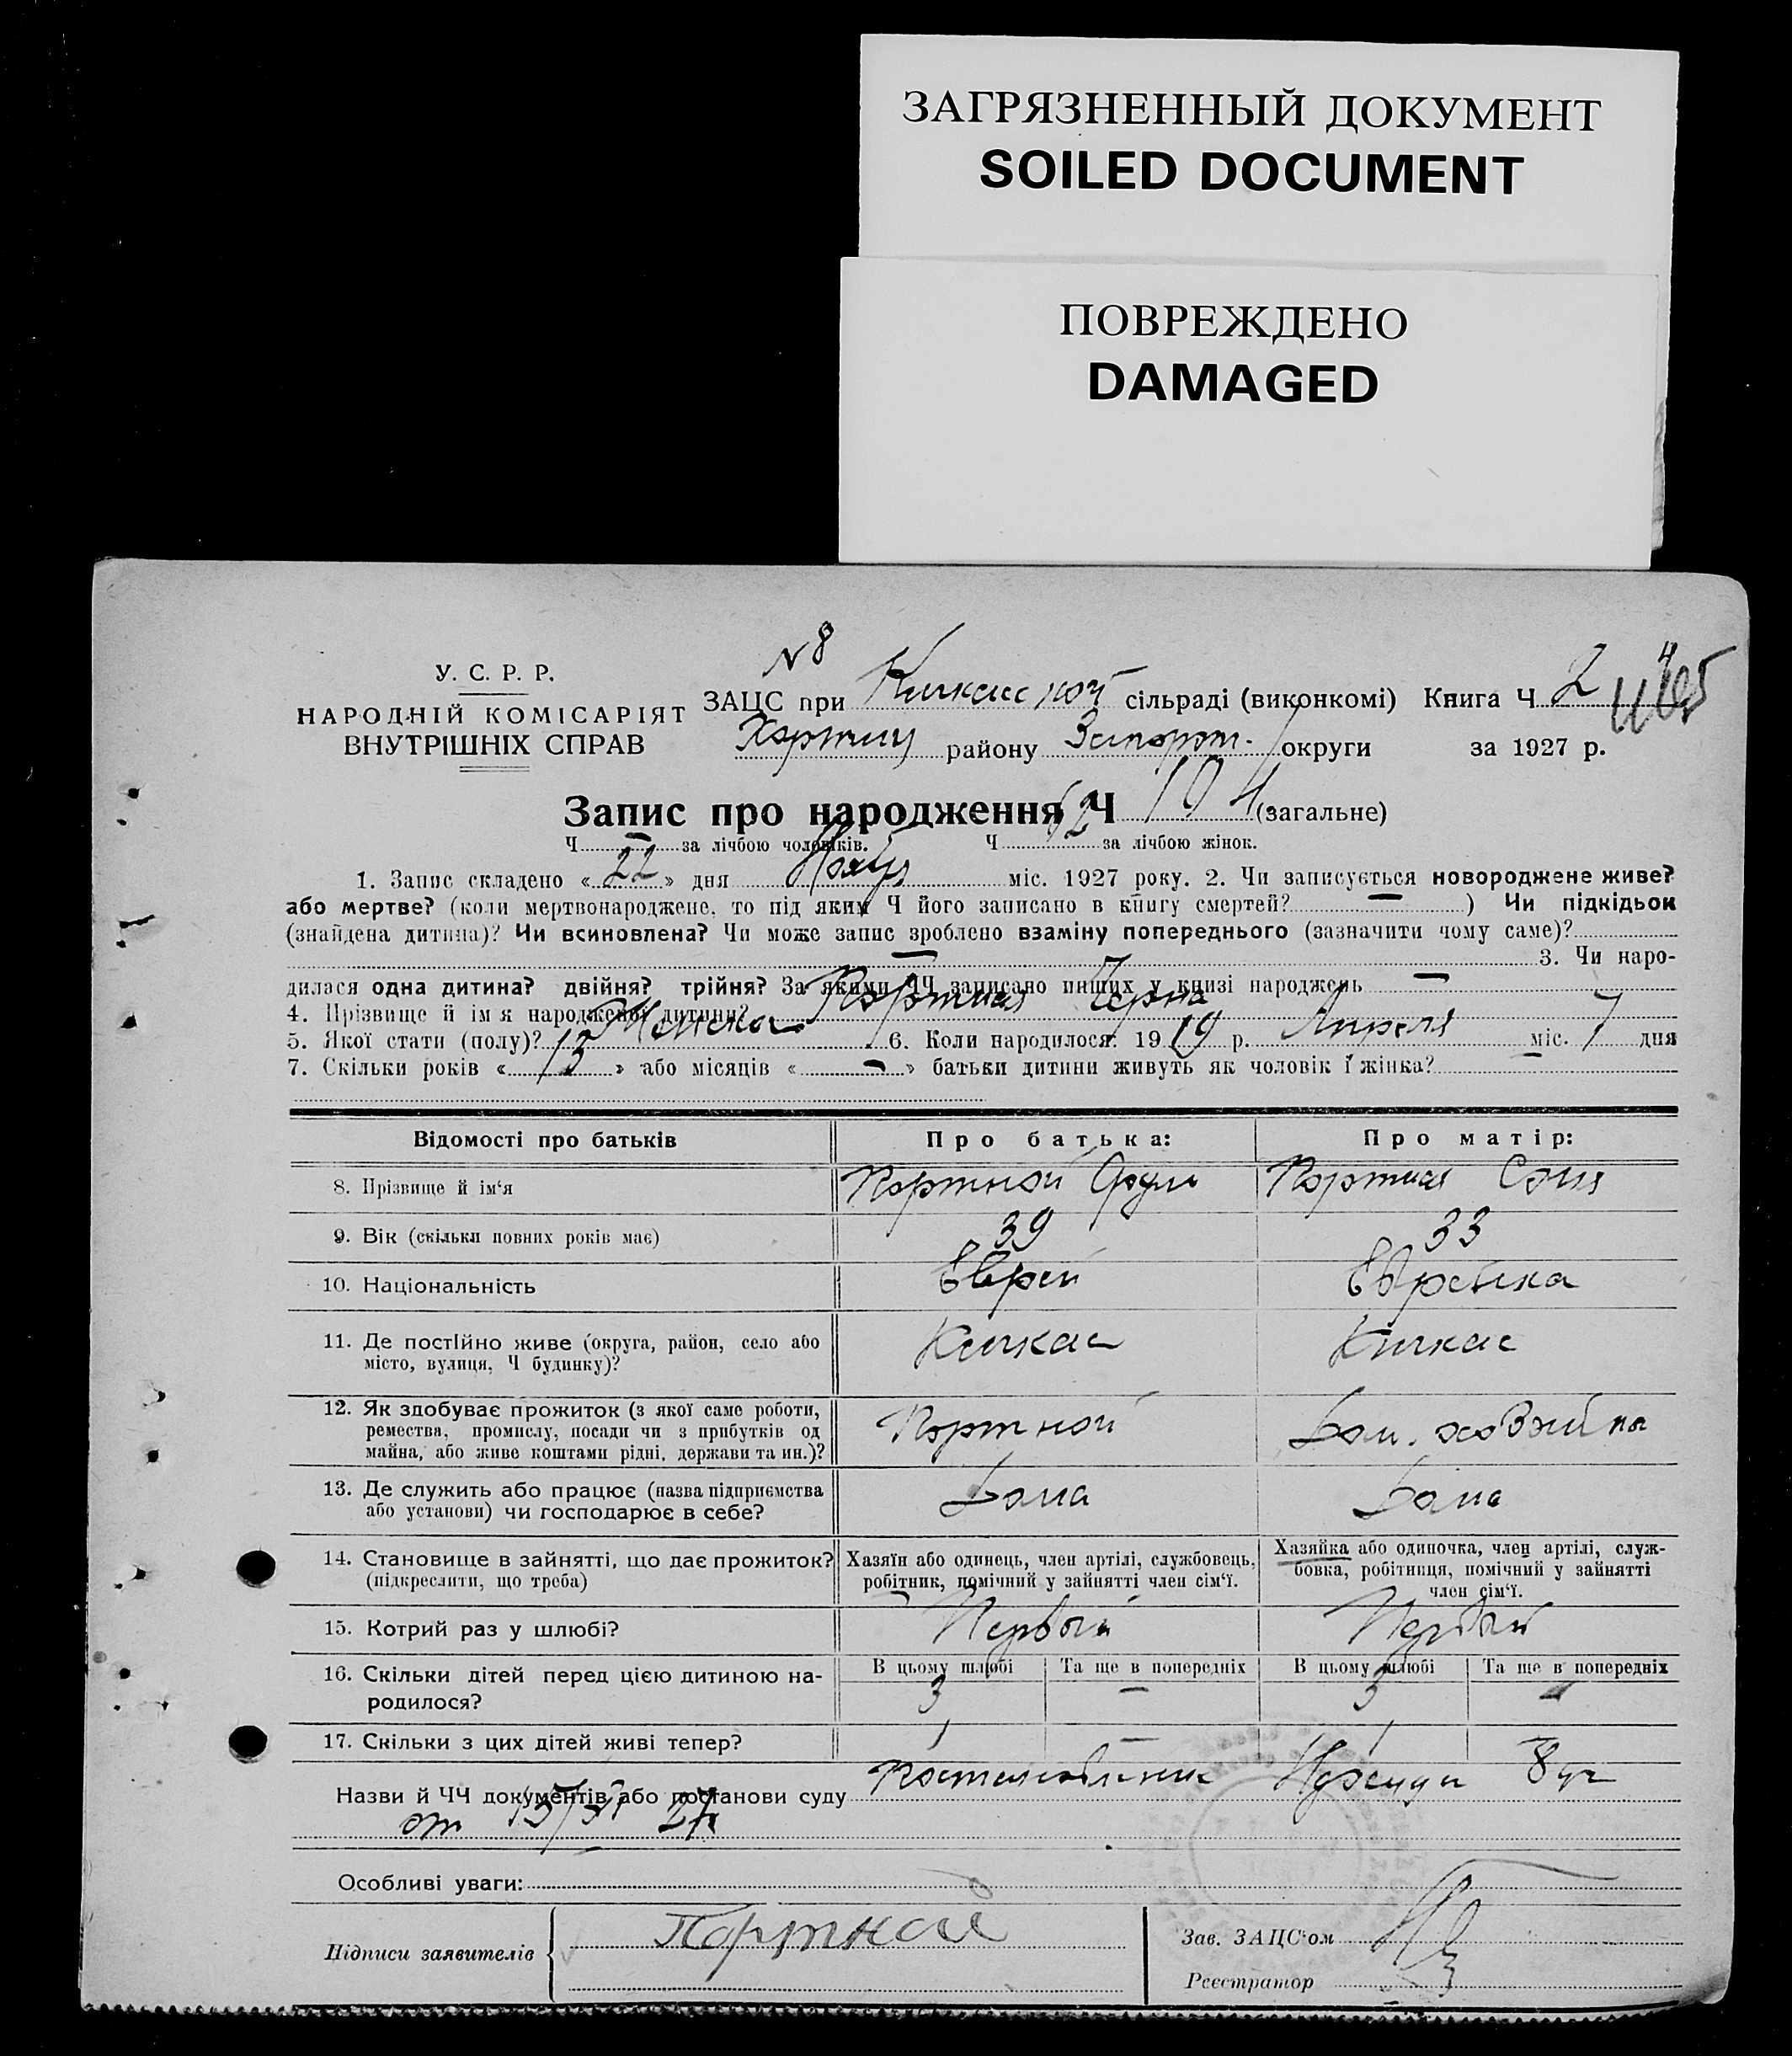 ЗАГРЯЗНЕННЫЙ ДОКУМЕНТ
SOILED DOCUMENT
ПОВРЕЖДЕНО
DAMAGED
N 8
У. С. Р. Р.
НАРОДНІЙ КОМІСАРІЯТ
ВНУТРІШНІХ СПРАВ
ЗАЦС при Кичкасской сільраді (виконкомі) Книга Ч 2
Хортиц района Запорож. округи за 1927 р.
Запис про народження Ч 104 (загальне)
Ч — за лічбою чоловіків. Ч 62 за лічбою жінок.
1. Запис складено «22» дня Ноябр міс. 1927 року. 2. Чи записується новороджене живе?
або мертве? (коли мертвонароджене, то під яким Ч його записано в книгу смертей? — ) Чи підкідьок
(знайдена дитина)? Чи всиновлена? Чи може запис зроблено взаміну попереднього (зазначити чому саме)?
— 3. Чи наро-
дилася одна дитина? двійня? трійня? За якими ЧЧ записано инших у книзі народжень —
4. Прізвище й ім'я народженої дитини? Портная
5. Якої стати (полу)? Женска 6. Коли народилося: 1919 р. Апреля міс. 7 дня
7. Скільки років «13» або місяців « — » батьки дитини живуть як чоловік і жінка?
Відомості про батьків Про батька: Про матір:
8. Прізвище й ім'я Портной Портная Соня
9. Вік (скільки повних років має) 39 33
10. Національність Еврей Еврейка
11. Де постійно живе (округа, район, село або
місто, вулиця, Ч будинку)? Кичкас Кичкас
12. Як здобуває прожиток (з якої саме роботи,
ремества, промислу, посади чи з прибутків од
майна, або живе коштами рідні, держави та ин.)? Портной Дом. хозяйка
13. Де служить або працює (назва підприємства
або установи) чи господарює в себе? Дома Дома
14. Становище в зайнятті, що дає прожиток?
(підкреслити, що треба)
Хазяїн або одинець, член артілі, службовець,
робітник, помічний у зайнятті член сім'ї.
Хазяйка або одиночка, член артілі, служ-
бовка, робітниця, помічний у зайнятті
член сім'ї.
15. Котрий раз у шлюбі? Первый Первый
16. Скільки дітей перед цією дитиною на-
родилося?
В цьому шлюбі Та ще в попередніх В цьому шлюбі Та ще в попередніх
3 — 3 —
17. Скільки з цих дітей живі тепер? 1 — 1 —
Назви й ЧЧ документів або постанови суду
от 27
Особливі уваги:
Підписи заявителів Портной
Зав. ЗАЦС'ом
Реєстратор